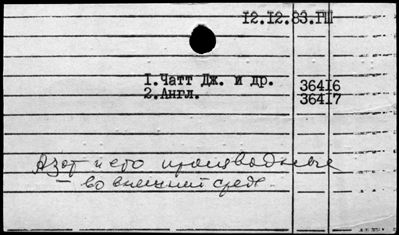 12.12.83.ГШ
1.Чатт Дж. и др. 36416
2.Англ. 36417
Азот и его производные
— во внешней среде